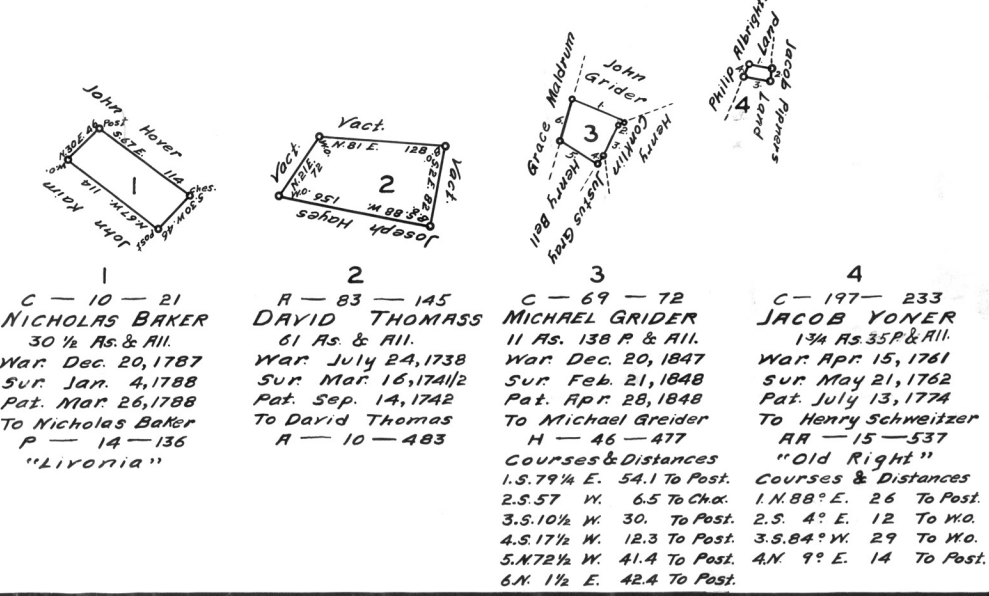 John Hover
N.30E.46
Post
S.67E.
114
Ches.
S.30W.46
Post
N.67W.
114
W.O.
John Kaim
1
Vact.
Vact.
W.O.
N.81 E.
128
B.O.
S.2 E. 82
Vact.
B.O.
S.88 W.
156
W.O.
N.21E.
72
2
Joseph Hayes
Grace Maldrum
John
Grider
Henry
Conklin
Justus Gray
Henry Bell
1.
2.
3.
4.
5.
6.
3
Philip Albright
Land
Jacob Pipners
Land
2
3.
4
1
C — 10 — 21
NICHOLAS BAKER
30 ½ As. & All.
War. Dec. 20, 1787
Sur. Jan. 4, 1788
Pat. Mar. 26, 1788
To Nicholas Baker
P — 14 — 136
"Livonia"
2
A — 83 — 145
DAVID THOMASS
61 As. & All.
War. July 24, 1738
Sur. Mar. 16, 1741/2
Pat. Sep. 14, 1742
To David Thomas
A — 10 — 483
3
C — 69 — 72
MICHAEL GRIDER
11 As. 138 P. & All.
War. Dec. 20, 1847
Sur. Feb. 21, 1848
Pat. Apr. 28, 1848
To Michael Greider
H — 46 — 477
Courses & Distances
1. S. 79¼ E. 54.1 To Post.
2. S. 57 W. 6.5 To Ch.o.
3. S. 10½ W. 30. To Post.
4. S. 17½ W. 12.3 To Post.
5. N. 72½ W. 41.4 To Post.
6. N. 1½ E. 42.4 To Post.
4
C — 197 — 233
JACOB YONER
1¾ As. 35 P. & All.
War. Apr. 15, 1761
Sur. May 21, 1762
Pat. July 13, 1774
To Henry Schweitzer
AA — 15 — 537
"Old Right"
Courses & Distances
1. N. 88° E. 26 To Post.
2. S. 4° E. 12 To W.O.
3. S. 84° W. 29 To W.O.
4. N. 9° E. 14 To Post.